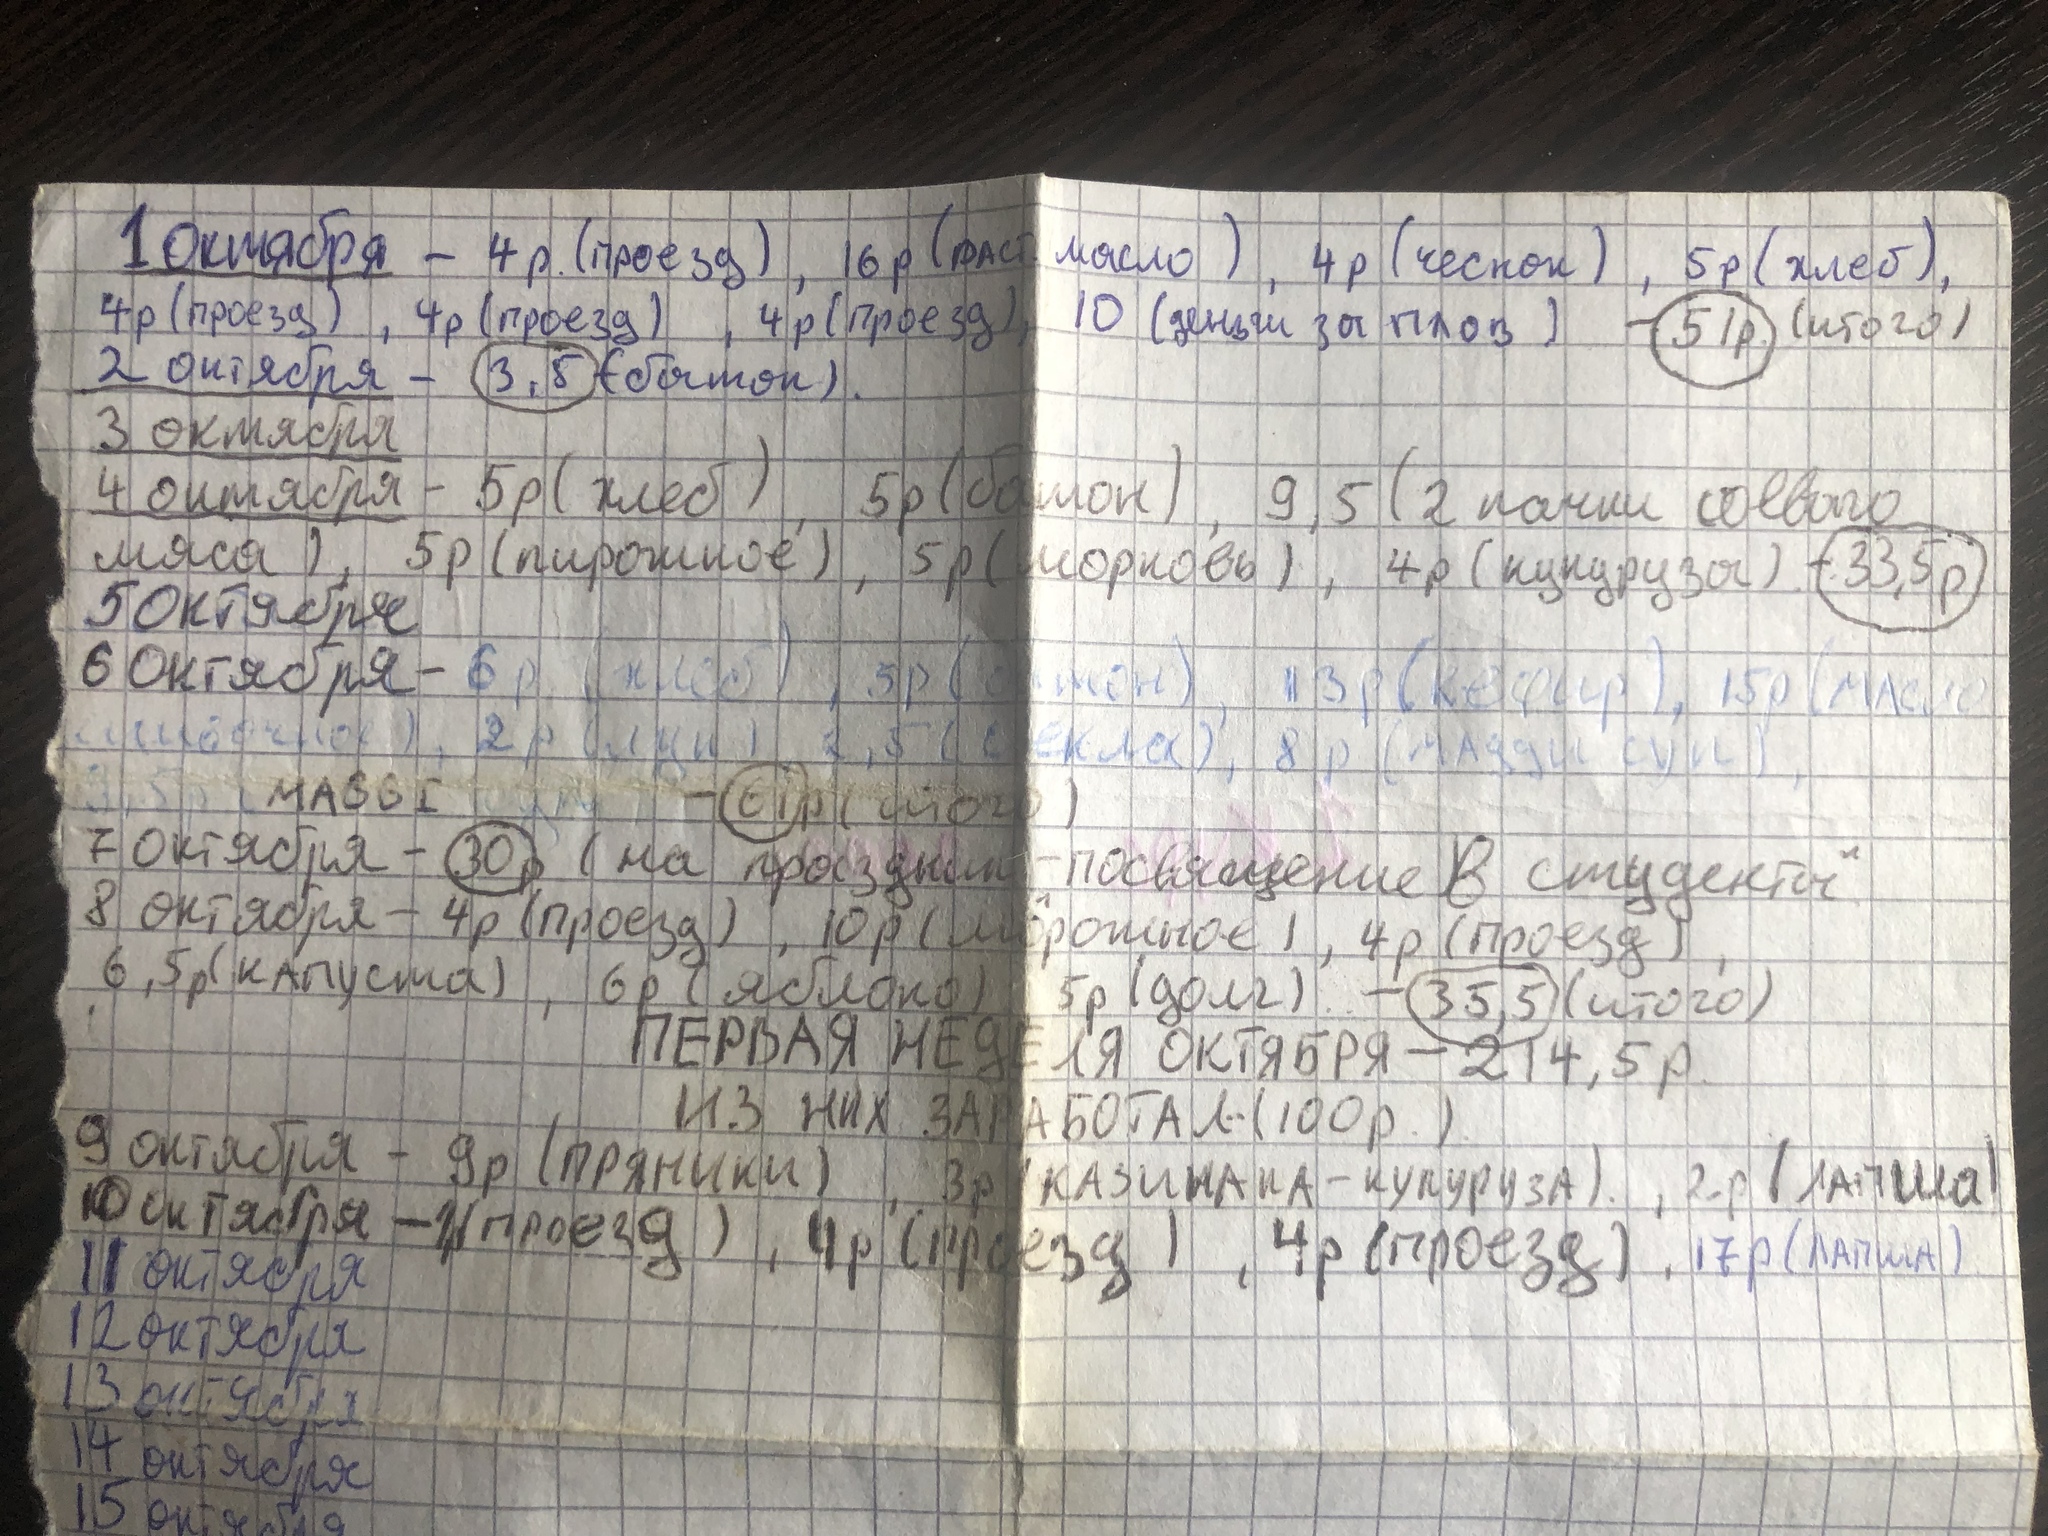 1 октября - 4р. (проезд), 16р (раст. масло), 4р (чеснок), 5р (хлеб),
4р (проезд), 4р (проезд), 4р (проезд), 10 (деньги за плов) - 51р. (итого)
2 октября - 3,5 (батон).
3 октября
4 октября - 5р (хлеб), 5р (батон), 9,5 (2 пачки соевого
мяса), 5р (пирожное), 5р (морковь), 4р (кукуруза) - 33,5р
5 октября
6 октября - 6р (хлеб), 5р (батон), 13р (кефир), 15р (масло
сливочное), 2р (лук), 2,5 (свекла), 8р (магги суп),
3,5р MAGGI - 61р (итого)
7 октября - 30р (на праздник - "посвящение в студенты"
8 октября - 4р (проезд), 10р (мороженое), 4р (проезд),
6,5р (капуста), 6р (яблоко) 5р (долг) - 35,5 (итого)
ПЕРВАЯ НЕДЕЛЯ ОКТЯБРЯ - 214,5р.
ИЗ НИХ ЗАРАБОТАЛ - (100р.)
9 октября - 9р (пряники), 3р (казинака - кукуруза)., 2р (лапша)
10 октября - (проезд), 4р (проезд), 4р (проезд), 17р (лапша)
11 октября
12 октября
13 октября
14 октября
15 октября